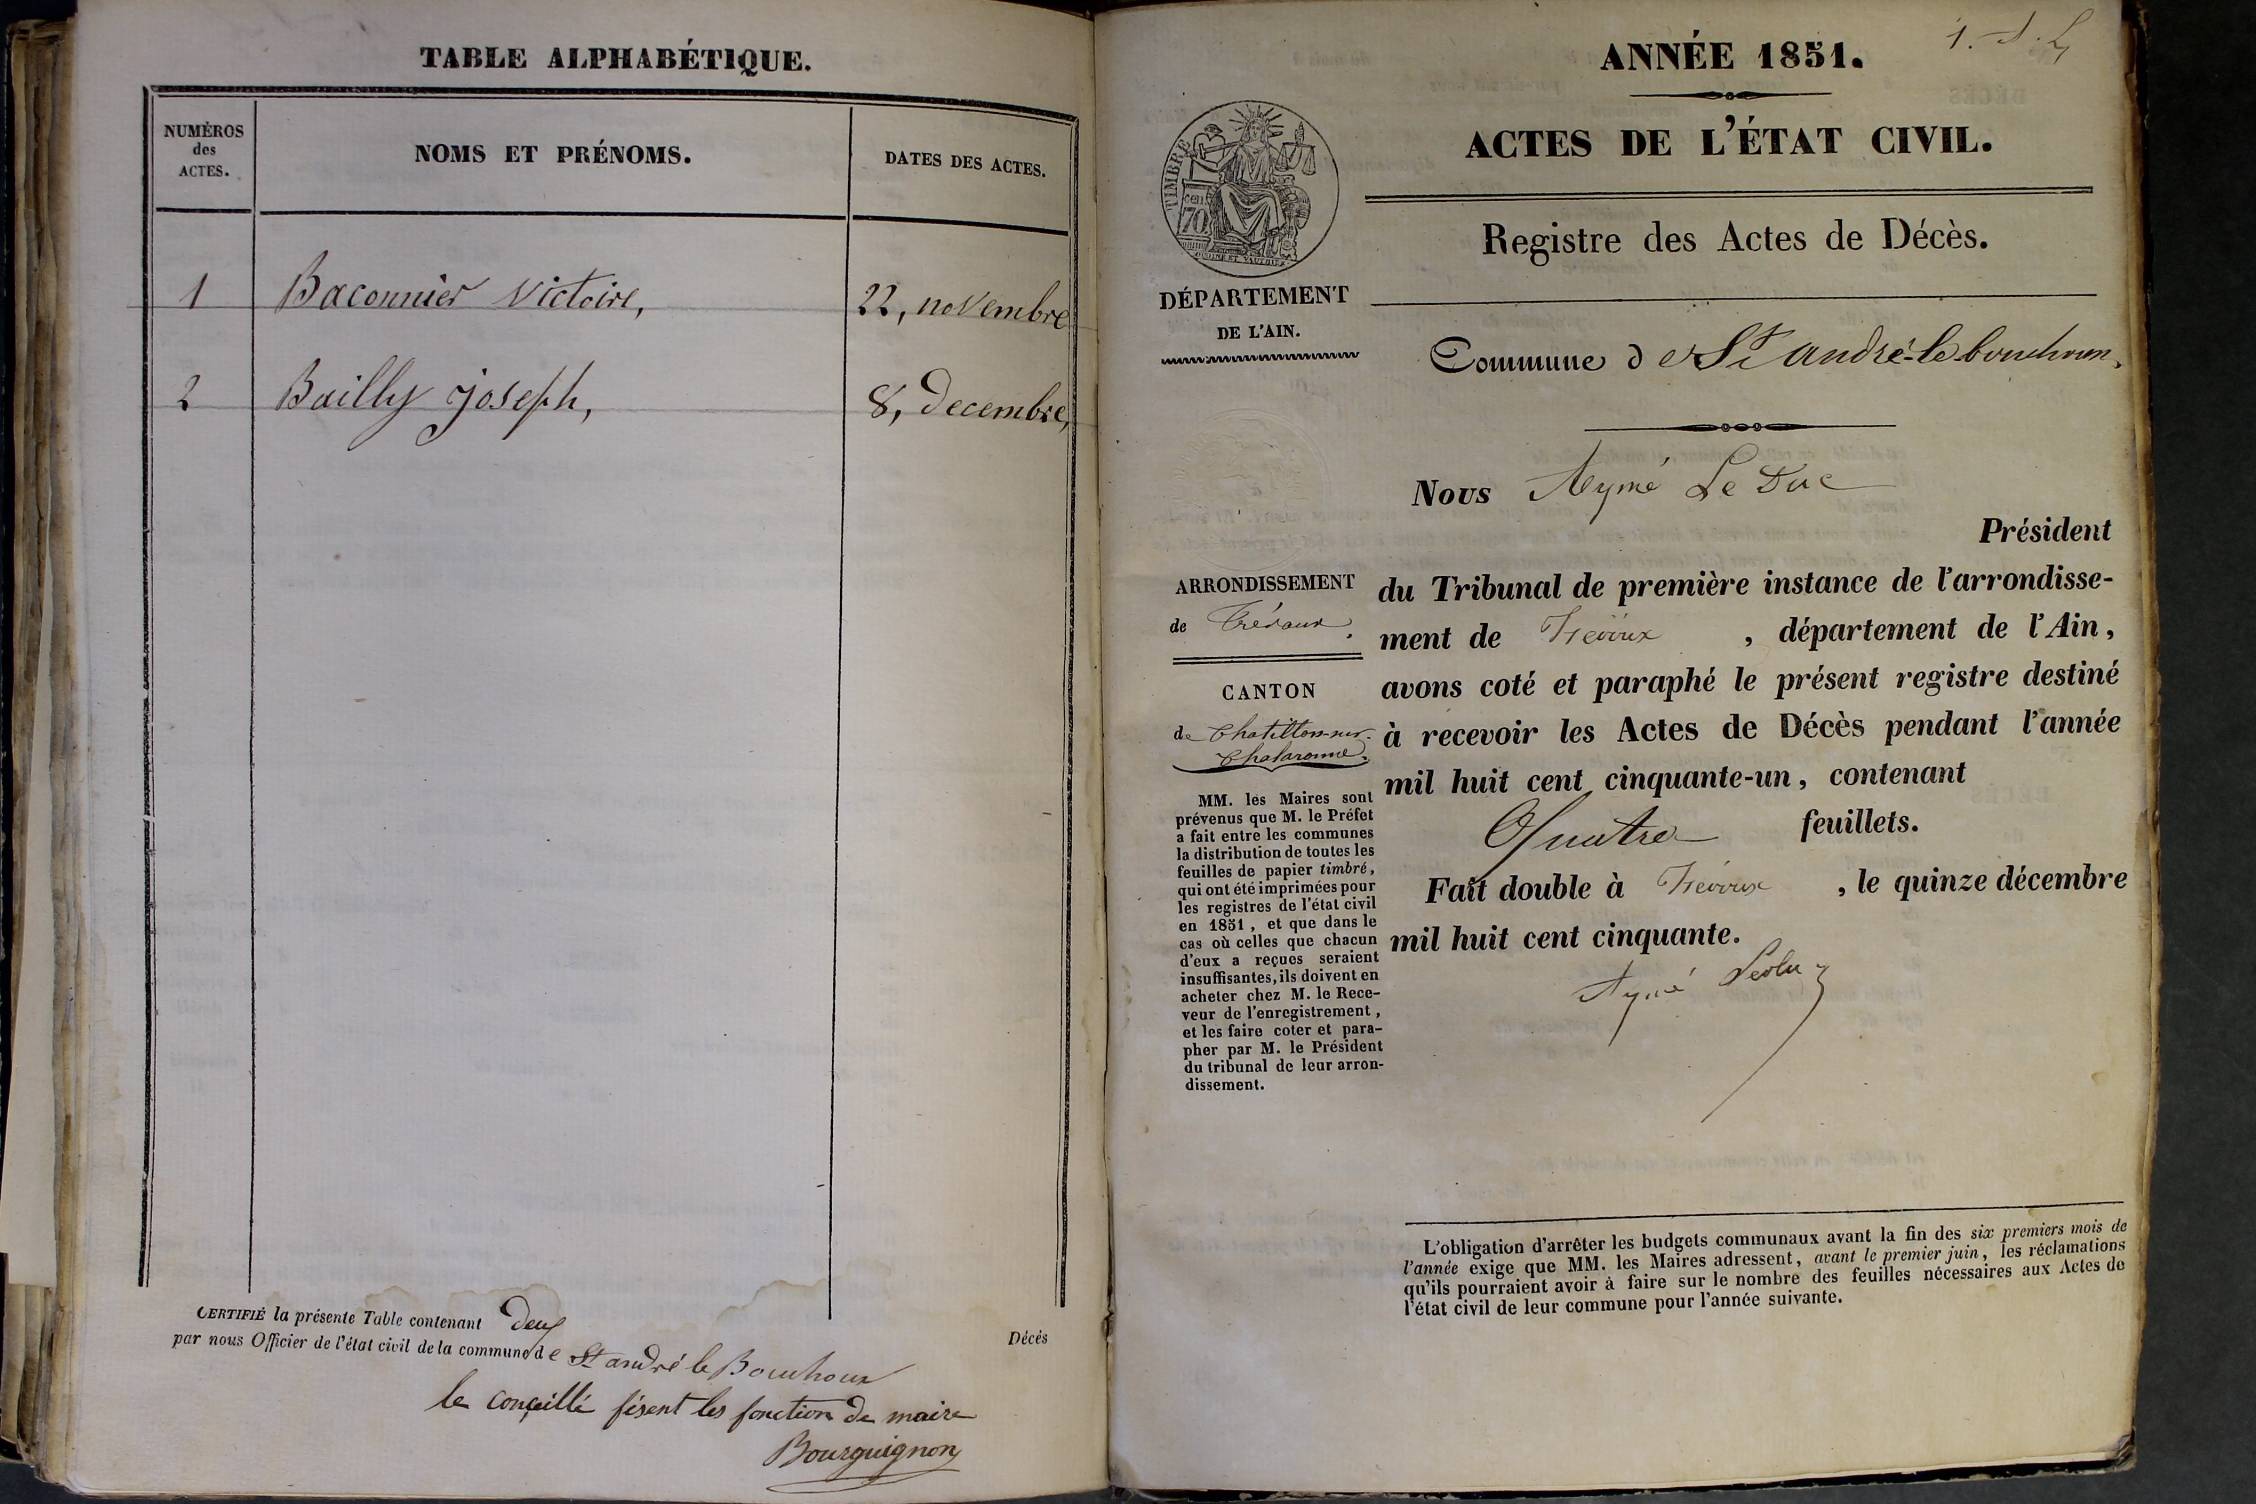 TABLE ALPHABÉTIQUE.
NUMÉROS
des
ACTES.
NOMS ET PRÉNOMS.
DATES DES ACTES.
1 Baconnier Victoire, 22, novembre
2 Bailly joseph, 8, decembre,
CERTIFIÉ la présente Table contenant deux Décès
par nous Officier de l'état civil de la commune de St andré le Bouchoux
le conçeillé fésent les fonction de maire
Bourguignon
1.
ANNÉE 1851.
ACTES DE L'ÉTAT CIVIL.
Registre des Actes de Décès.
TIMBRE
CENT.
70
DÉPARTEMENT
DE L'AIN.
Commune de St andré-le-bouchoux,
ARRONDISSEMENT
de Trévoux.
CANTON
de Chatillon-sur-
Chalaronne.
MM. les Maires sont
prévenus que M. le Préfet
a fait entre les communes
la distribution de toutes les
feuilles de papier timbré,
qui ont été imprimées pour
les registres de l'état civil
en 1851, et que dans le
cas où celles que chacun
d'eux a reçues seraient
insuffisantes, ils doivent en
acheter chez M. le Rece-
veur de l'enregistrement,
et les faire coter et para-
pher par M. le Président
du tribunal de leur arron-
dissement.
Nous Aymé Le Duc
Président
du Tribunal de première instance de l'arrondisse-
ment de Trévoux, département de l'Ain,
avons coté et paraphé le présent registre destiné
à recevoir les Actes de Décès pendant l'année
mil huit cent cinquante-un, contenant
Quatre feuillets.
Fait double à Trévoux, le quinze décembre
mil huit cent cinquante.
Aymé Leduc
L'obligation d'arrêter les budgets communaux avant la fin des six premiers mois de
l'année exige que MM. les Maires adressent, avant le premier juin, les réclamations
qu'ils pourraient avoir à faire sur le nombre des feuilles nécessaires aux Actes de
l'état civil de leur commune pour l'année suivante.